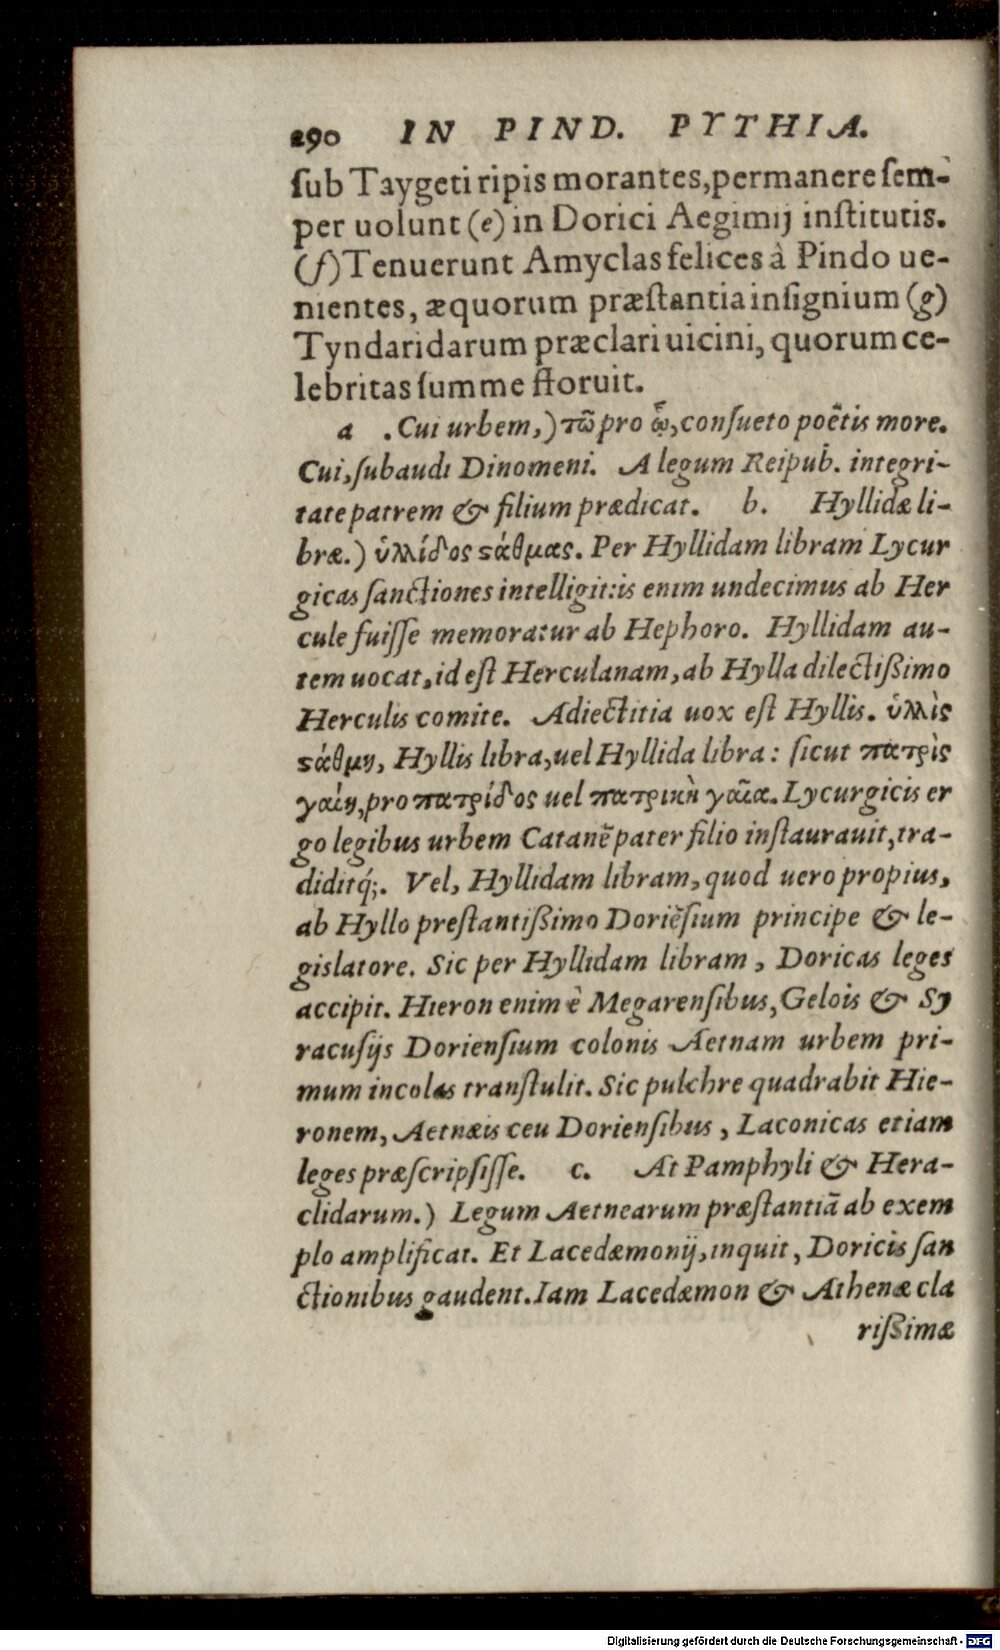 290 IN PIND. PYTHIA.
ſub Taygeti ripis morantes, permanere ſem-
per uolunt (e) in Dorici Aegimij inſtitutis.
(f) Tenuerunt Amyclas felices à Pindo ue-
nientes, æquorum præſtantia inſignium (g)
Tyndaridarum præclari uicini, quorum ce-
lebritas ſumme floruit.
a . Cui urbem,) τῶ pro ᾧ, conſueto poëtis more.
Cui, ſubaudi Dinomeni. A legum Reipub. integri-
tate patrem & filium prædicat. b. Hyllidæ li-
bræ.) ὑλλίδος ϛάθμας. Per Hyllidam libram Lycur
gicas ſanctiones intelligit: is enim undecimus ab Her
cule fuiſſe memoratur ab Hephoro. Hyllidam au-
tem uocat, id eſt Herculanam, ab Hylla dilectißimo
Herculis comite. Adiectitia uox eſt Hyllis. ὑλλὶς
ϛάθμη, Hyllis libra, uel Hyllida libra: ſicut πατρὶς
γαίη, pro πατρίδος uel πατρικὴ γαῖα. Lycurgicis er
go legibus urbem Catanẽ pater filio inſtaurauit, tra-
diditq́;. Vel, Hyllidam libram, quod uero propius,
ab Hyllo preſtantißimo Doriẽſium principe & le-
gislatore. Sic per Hyllidam libram, Doricas leges
accipit. Hieron enim è Megarenſibus, Gelois & Sy
racuſijs Dorienſium colonis Aetnam urbem pri-
mum incolas tranſtulit. Sic pulchre quadrabit Hie-
ronem, Aetnæis ceu Dorienſibus, Laconicas etiam
leges præſcripſiſſe. c. At Pamphyli & Hera-
clidarum.) Legum Aetnearum præſtantiã ab exem
plo amplificat. Et Lacedæmonij, inquit, Doricis ſan
ctionibus gaudent. Iam Lacedæmon & Athenæ cla
rißimæ
Digitalisierung gefördert durch die Deutsche Forschungsgemeinschaft - DFG